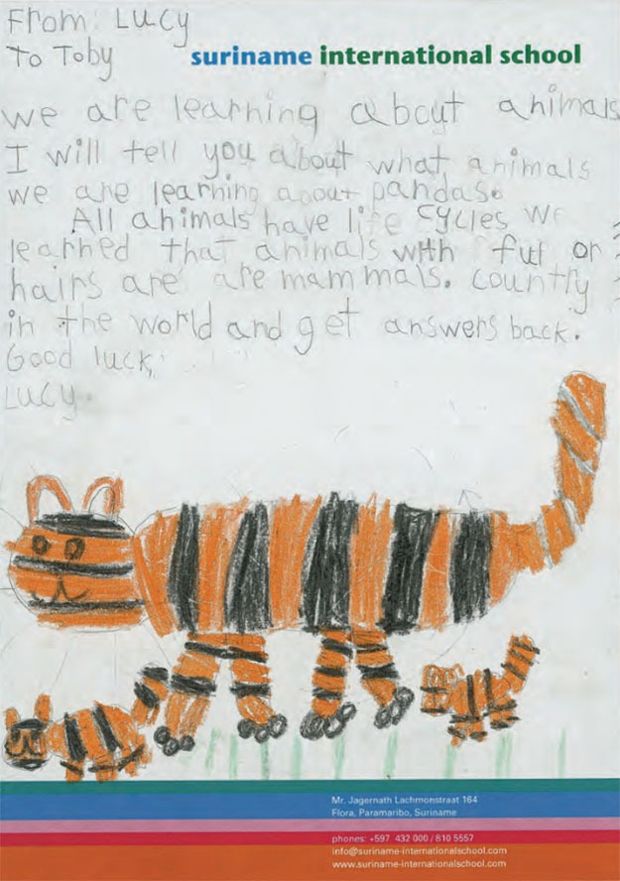 From: Lucy
To Toby
suriname international school
we are learning about animals
I will tell you about what animals
we are learning about pandas.
All animals have life cycles We
learned that animals with fur or
hairs are are mammals. country
in the world and get answers back.
Good luck,
Lucy.
Mr. Jagernath Lachmonstraat 164
Flora, Paramaribo, Suriname
phones: +597 432 000 / 810 5557
info@suriname-internationalschool.com
www.suriname-internationalschool.com